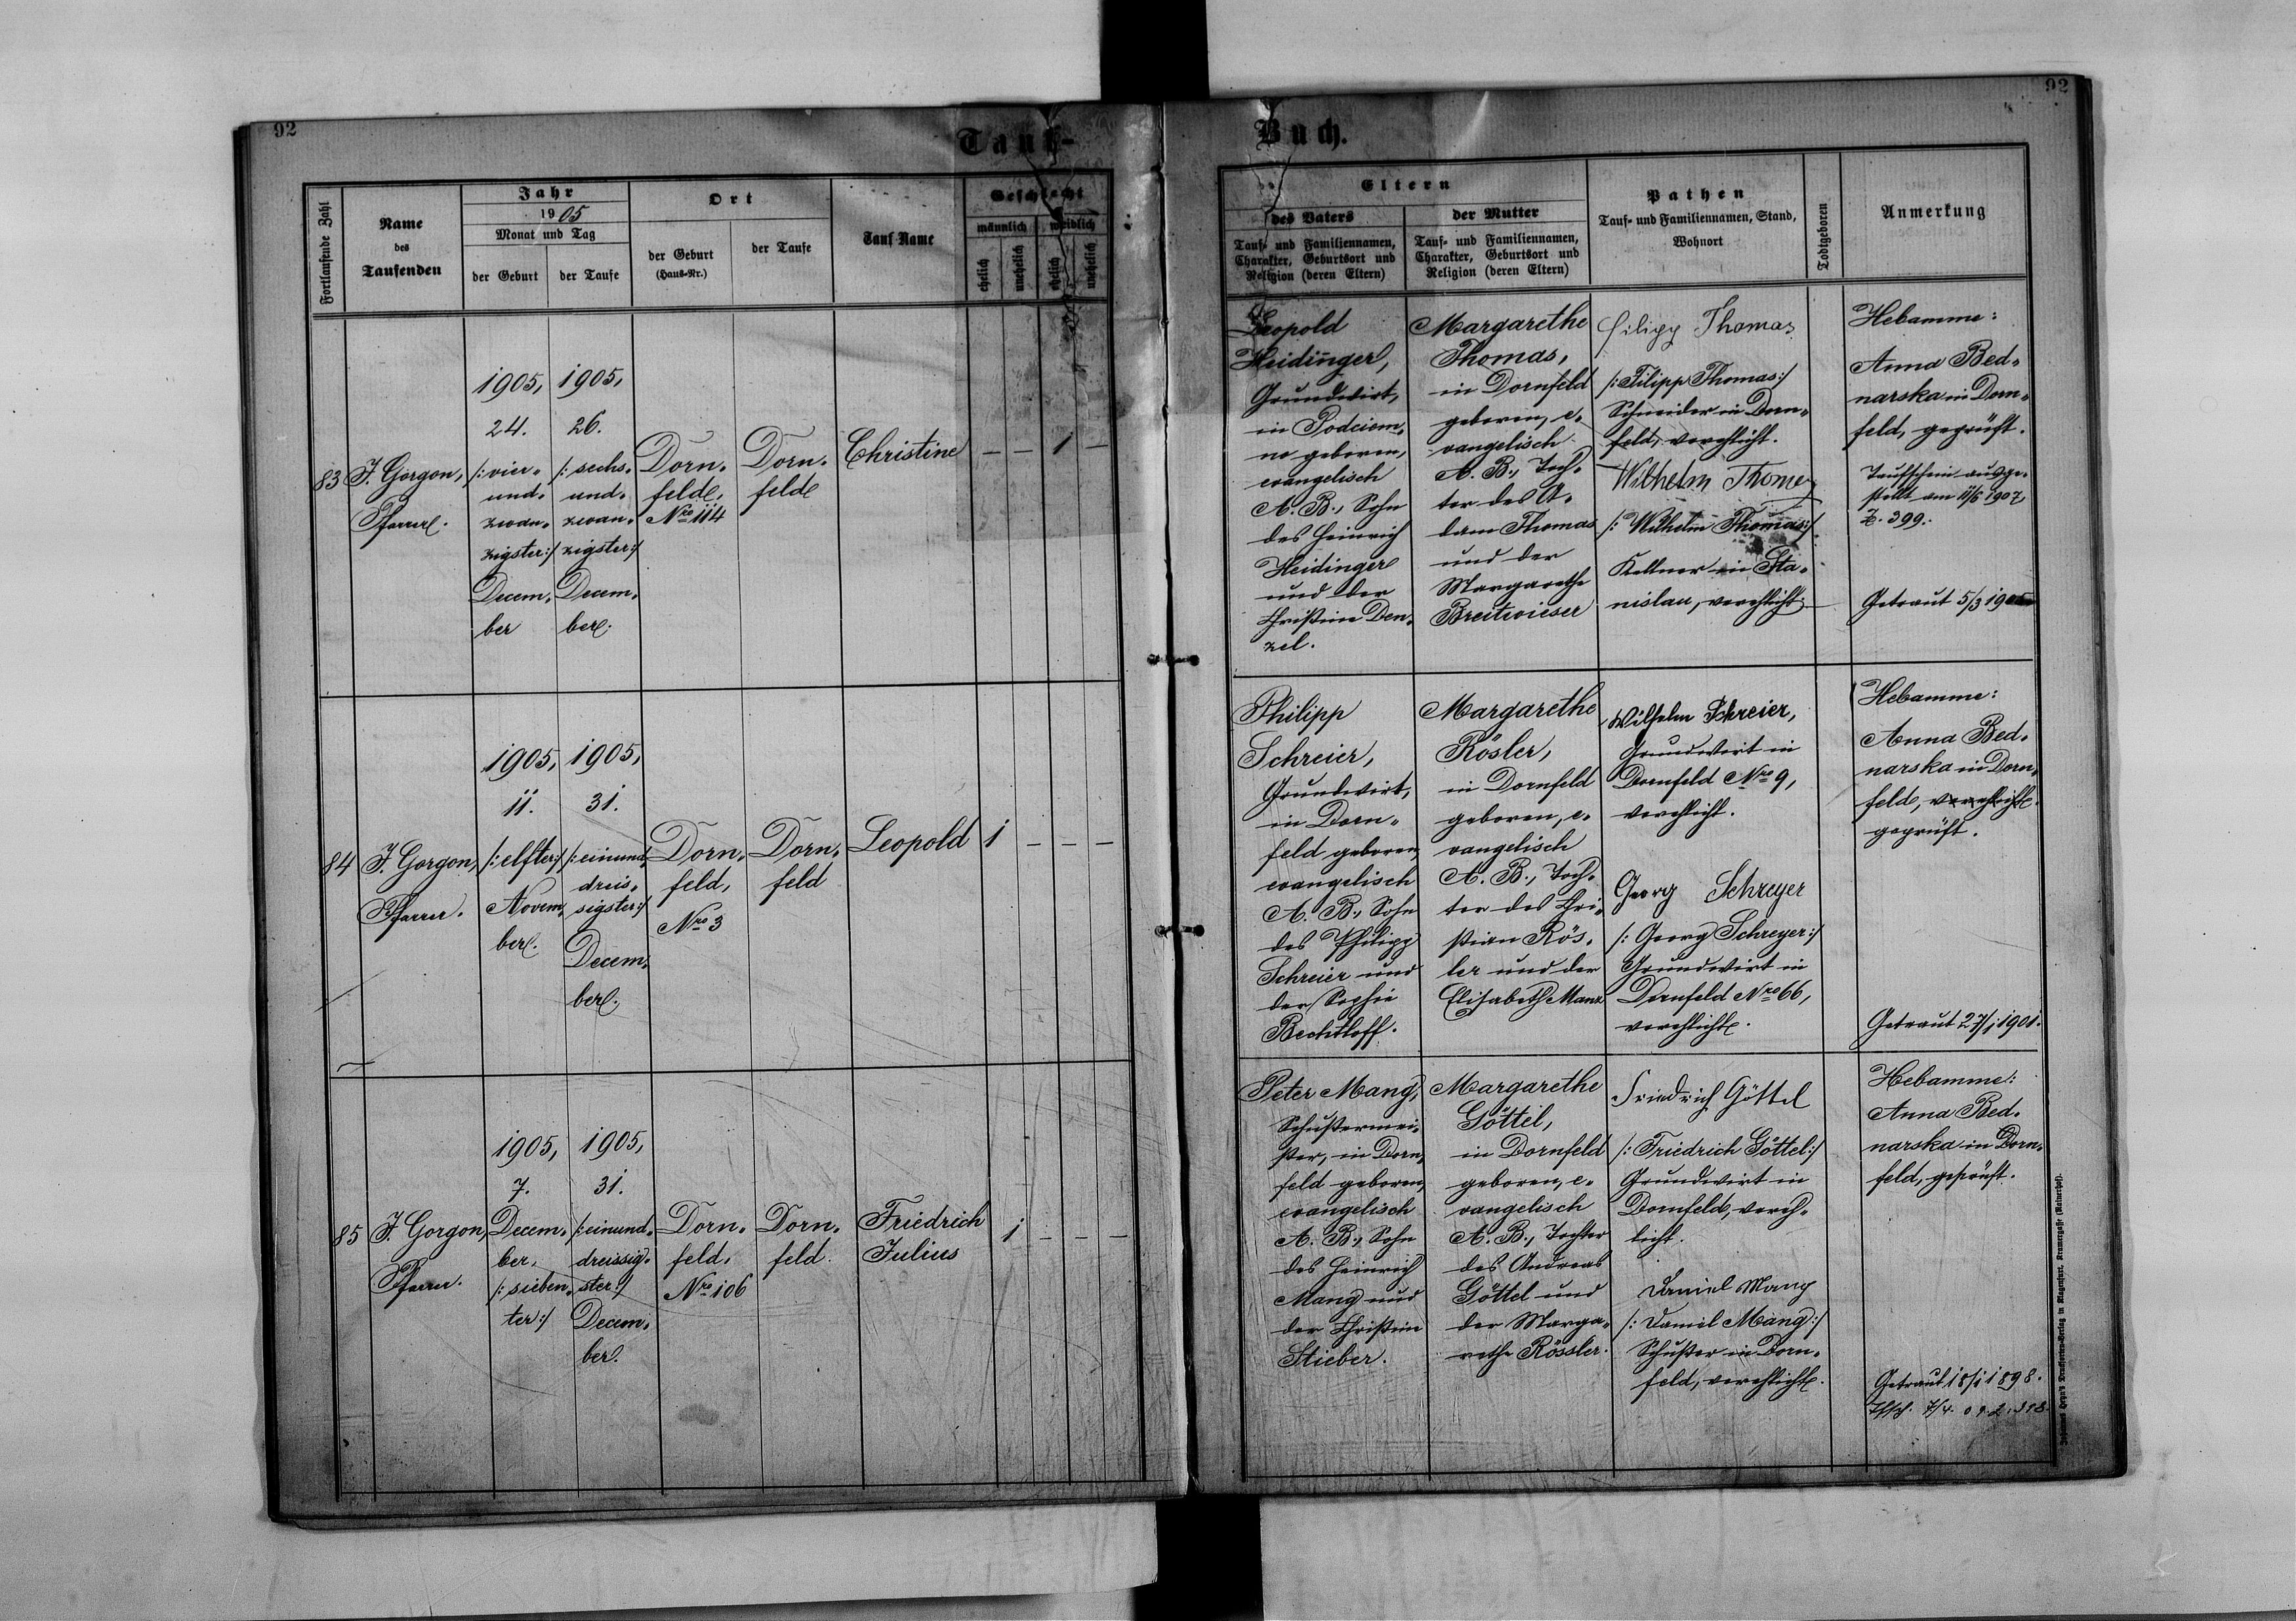 92
92
Tauf-
Buch.
Fortlaufende Zahl
Name
des
Taufenden
Jahr
1905
Monat und Tag
der Geburt
der Taufe
Ort
der Geburt
(Haus-Nr.)
der Taufe
Tauf-Name
Geschlecht
männlich
weiblich
ehelich
unehelich
ehelich
unehelich
Eltern
des Vaters
Tauf- und Familiennamen,
Charakter, Geburtsort und
Religion (deren Eltern)
der Mutter
Tauf- und Familiennamen,
Charakter, Geburtsort und
Religion (deren Eltern)
Pathen
Tauf- und Familiennamen, Stand,
Wohnort
Todtgeboren
Anmerkung
83
F. Gorgon,
Pfarrer.
1905,
24.
/:vier-
und-
zwan-
zigster:/
Decem-
ber
1905,
26.
/:sechs-
und-
zwan-
zigster:/
Decem-
ber.
Dorn-
feld,
Nro 114
Dorn-
feld
Christine
– – 1 –
Leopold
Heidinger,
Grundwirt,
in Podciem-
no geboren,
evangelisch
A. B., Sohn
des Heinrich
Heidinger
und der
Christine Den-
zel.
Margarethe
Thomas,
in Dornfeld
geboren, e-
vangelisch
A. B., Toch-
ter des A-
dam Thomas
und der
Margarethe
Breitwieser
Filipp Thomas
/:Filipp Thomas:/
Schneider in Dorn-
feld, verehlicht.
Wilhelm Thomas
/:Wilhelm Thomas:/
Kellner in Sta-
nislau, verehlicht.
Hebamme:
Anna Bed-
narska in Dorn-
feld, geprüft.
Taufschein ausge-
stellt am 11/6 1907,
Z. 399.
Getraut 5/3 1905
84
F. Gorgon,
Pfarrer.
1905,
11.
/:elfter:/
Novem-
ber.
1905,
31.
/:einund-
dreis-
sigster:/
Decem-
ber.
Dorn-
feld,
Nro 3
Dorn-
feld
Leopold
1 – – –
Philipp
Schreier,
Grundwirt,
in Dorn-
feld geboren,
evangelisch
A. B., Sohn
des Philipp
Schreier und
der Sophie
Bechtloff.
Margarethe
Rösler,
in Dornfeld
geboren, e-
vangelisch
A. B., Toch-
ter des Chri-
stian Rös-
ler und der
Elisabeth Manz
Wilhelm Schreier,
Grundwirt in
Dornfeld Nro 9,
verehlicht.
Georg Schreyer
/:Georg Schreyer:/
Grundwirt in
Dornfeld Nro 66,
verehlicht.
Hebamme:
Anna Bed-
narska in Dorn-
feld, verehlicht.
geprüft.
Getraut 27/1 1901.
85
F. Gorgon,
Pfarrer.
1905,
7.
Decem-
ber,
/:sieben-
ter:/
1905,
31.
/:einund-
dreissig-
ster:/
Decem-
ber.
Dorn-
feld,
Nro 106
Dorn-
feld.
Friedrich
Julius
1 – – –
Peter Mang,
Schustermei-
ster, in Dorn-
feld geboren,
evangelisch
A. B., Sohn
des Heinrich
Mang und
der Christine
Stieber.
Margarethe
Göttel,
in Dornfeld
geboren, e-
vangelisch
A. B., Tochter
des Andreas
Göttel und
der Marga-
rethe Rössler.
Friedrich Göttel
/:Friedrich Göttel:/
Grundwirt in
Dornfeld, vereh-
licht.
Daniel Mang
/:Daniel Mang:/
Schuster in Dorn-
feld, verehlicht.
Hebamme:
Anna Bed-
narska in Dorn-
feld, geprüft.
Getraut 18/1 1898.
7/4. 09.